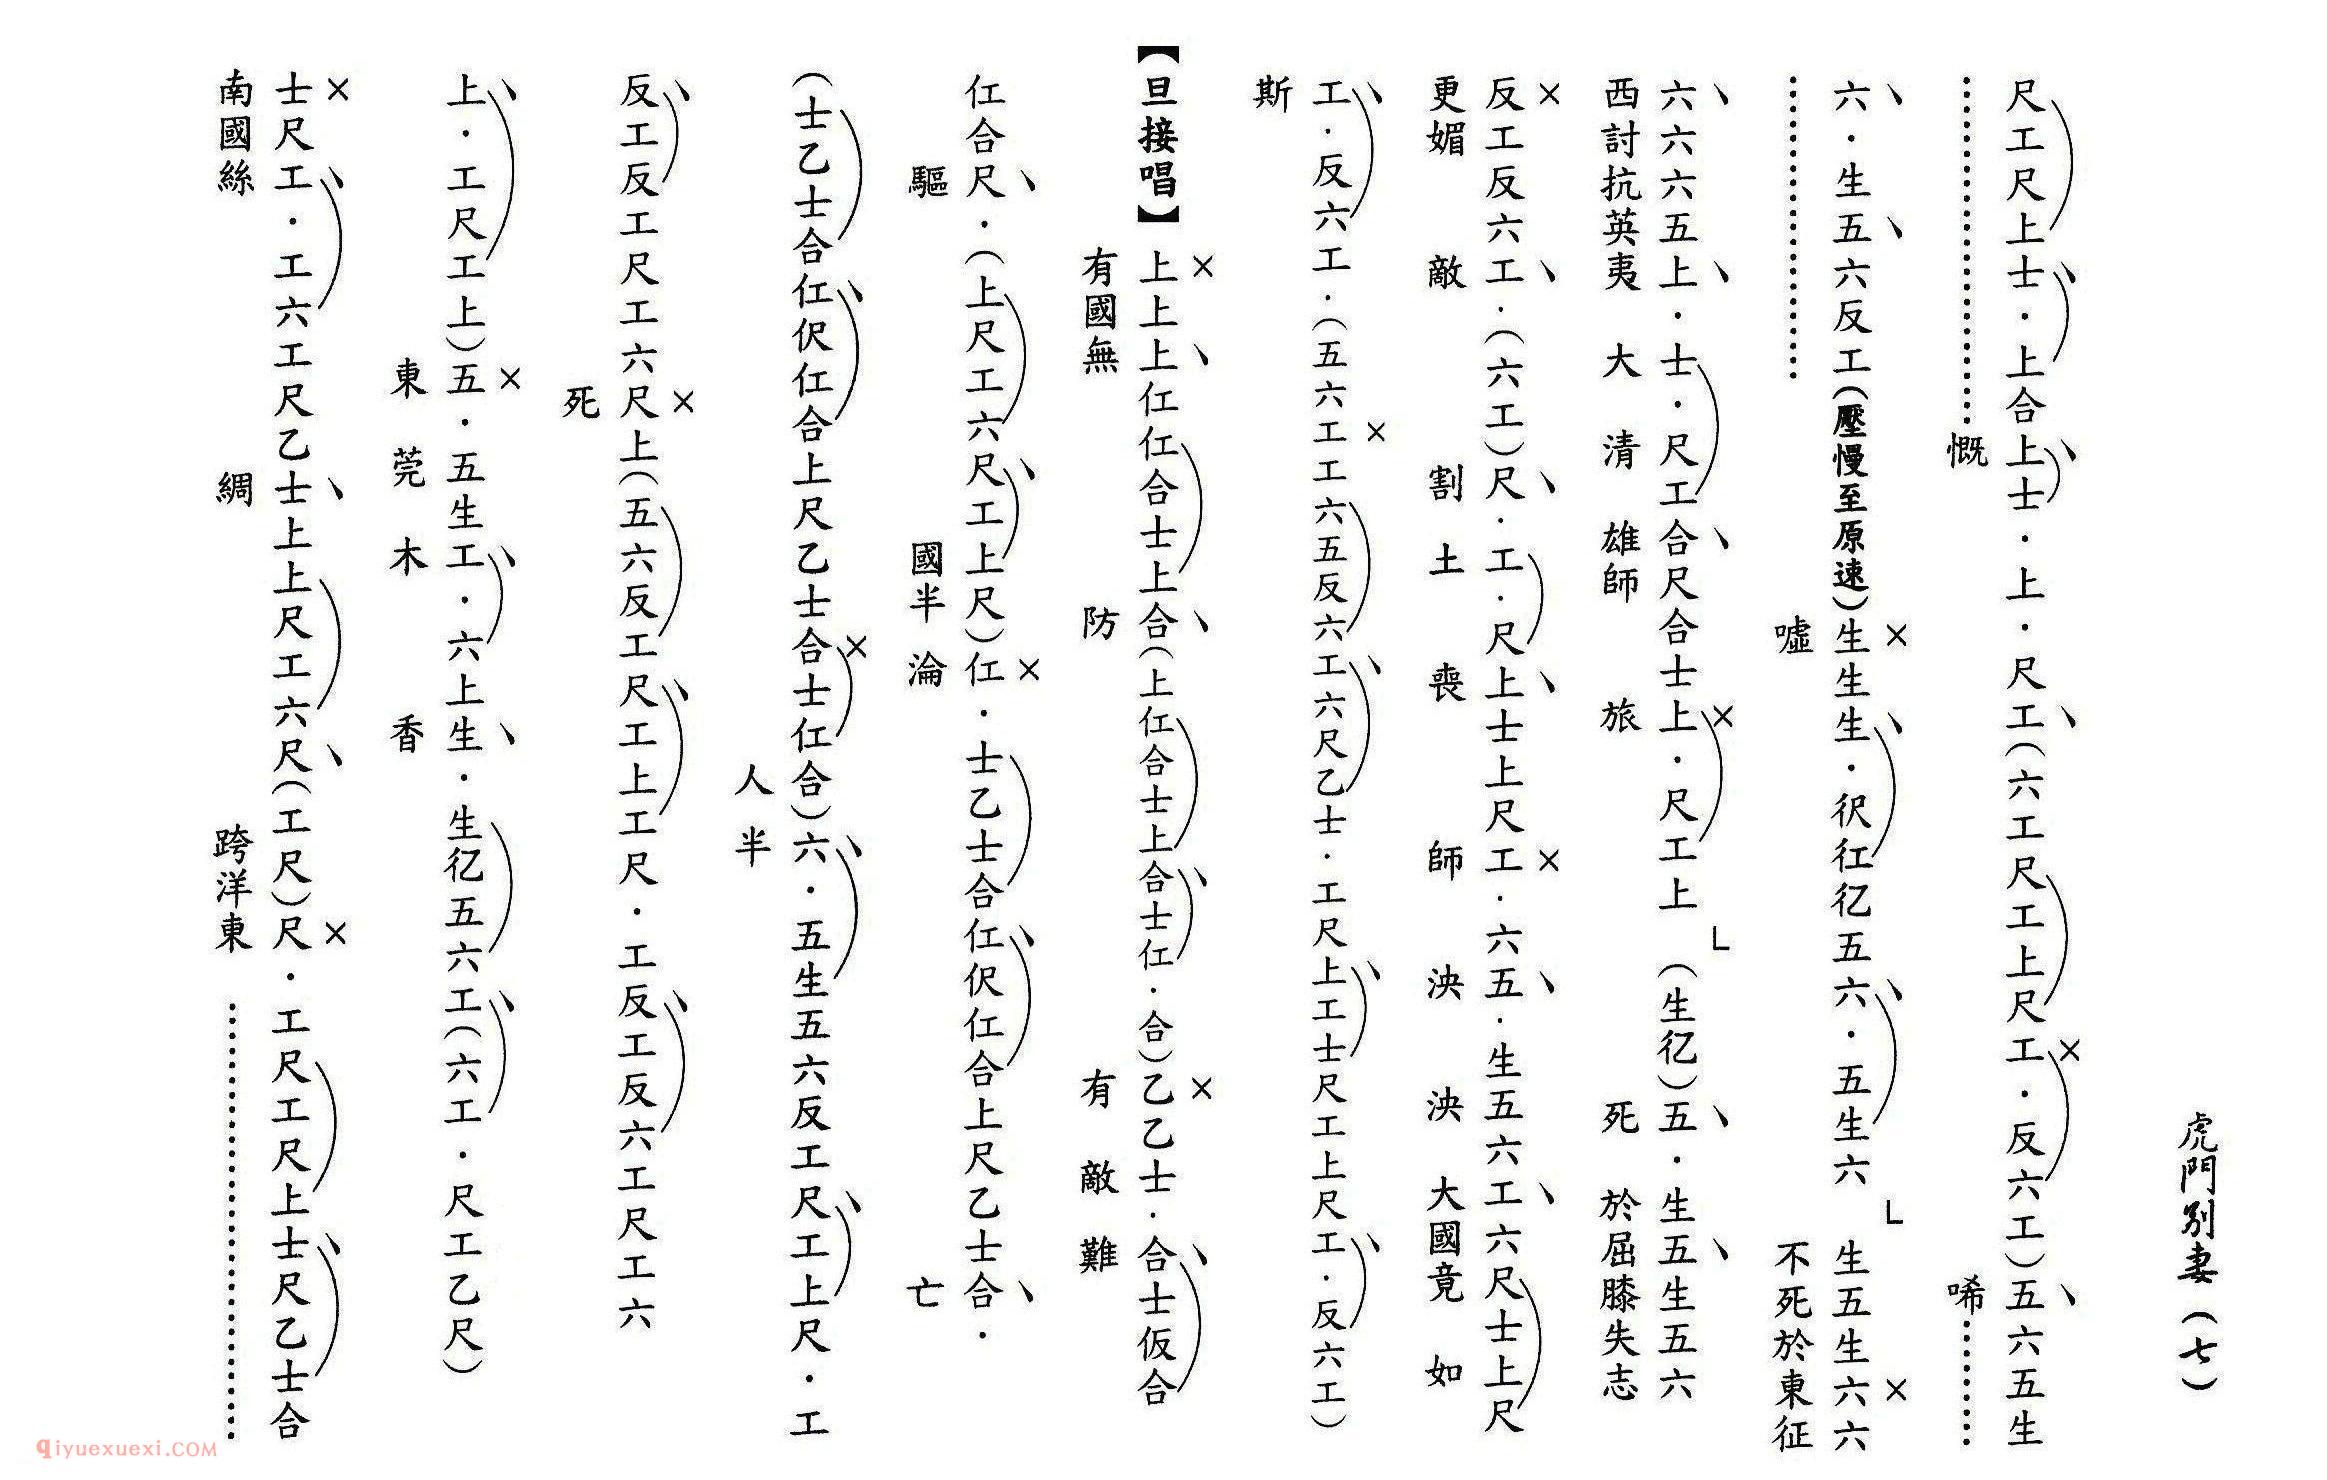 虎門別妻(七)
尺工尺上士·上合上士·上·尺工(六工尺工上尺工·反六工)五六五生
慨 唏
六·生五六反工(壓慢至原速)生生生·彳尺彳工彳乙五六六·五生六 L 生五生六六
噓 不死於東征
六六六五上·士·尺工合尺合士上·尺工上 L (生彳乙)五·生五生五六
西討抗英夷 大清雄師旅 死於屈膝失志
反工反六工·(六工)尺·工·尺上士上尺工·六五·生五六工六尺士上尺
更媚敵 割土喪師 泱泱大國竟如
工·反六工·(五六工工六五反六工六尺乙士·工尺上工士尺工上尺工·反六工)
斯
【旦接唱】上上上仜仜合士上合(上仜合士上合士仜·合)乙乙士·合士仮合
有國無防 有敵難
仜合尺·(上尺工六尺工上尺)仜·士乙士合仜伬仜合上尺乙士合·
驅 國半淪亡
(士乙士合仜伬仜合上尺乙士合士仜合)六·五生五六反工尺工上尺·工
人半
反工反工尺工六尺上(五六反工尺工上工尺·工反工反六工尺工六
死
上·工尺工上)五·五生工·六上生·生彳乙五六工(六工·尺工乙尺)
東莞木香
士尺工·工六工尺乙士上上尺工六尺(工尺)尺·工尺工尺上士尺乙士合
南國絲綢 跨洋東
qiyuexuexi.COM